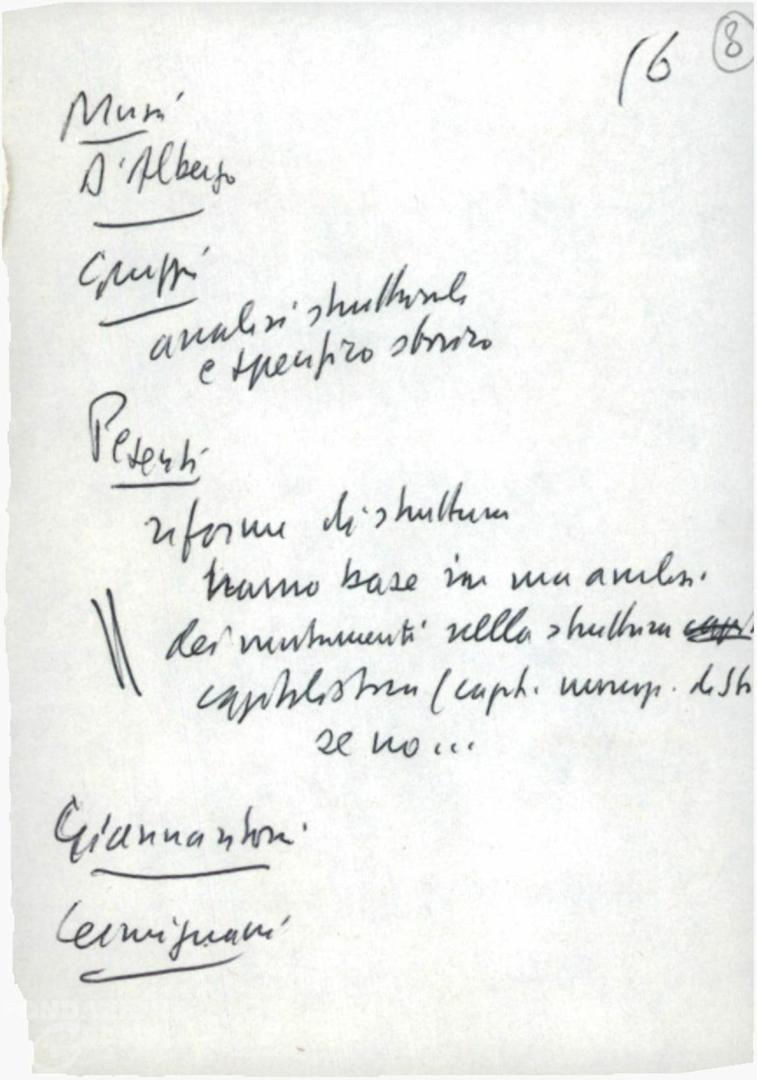 16 8
Mussi
D'Albergo
Gruppi
analisi strutturale
e specifico storico
Pesenti
riforme di struttura
hanno base in una analisi
dei mutamenti nella struttura
capitalistica (capit. monop. di St
se no...
Giannantoni
Cermignani